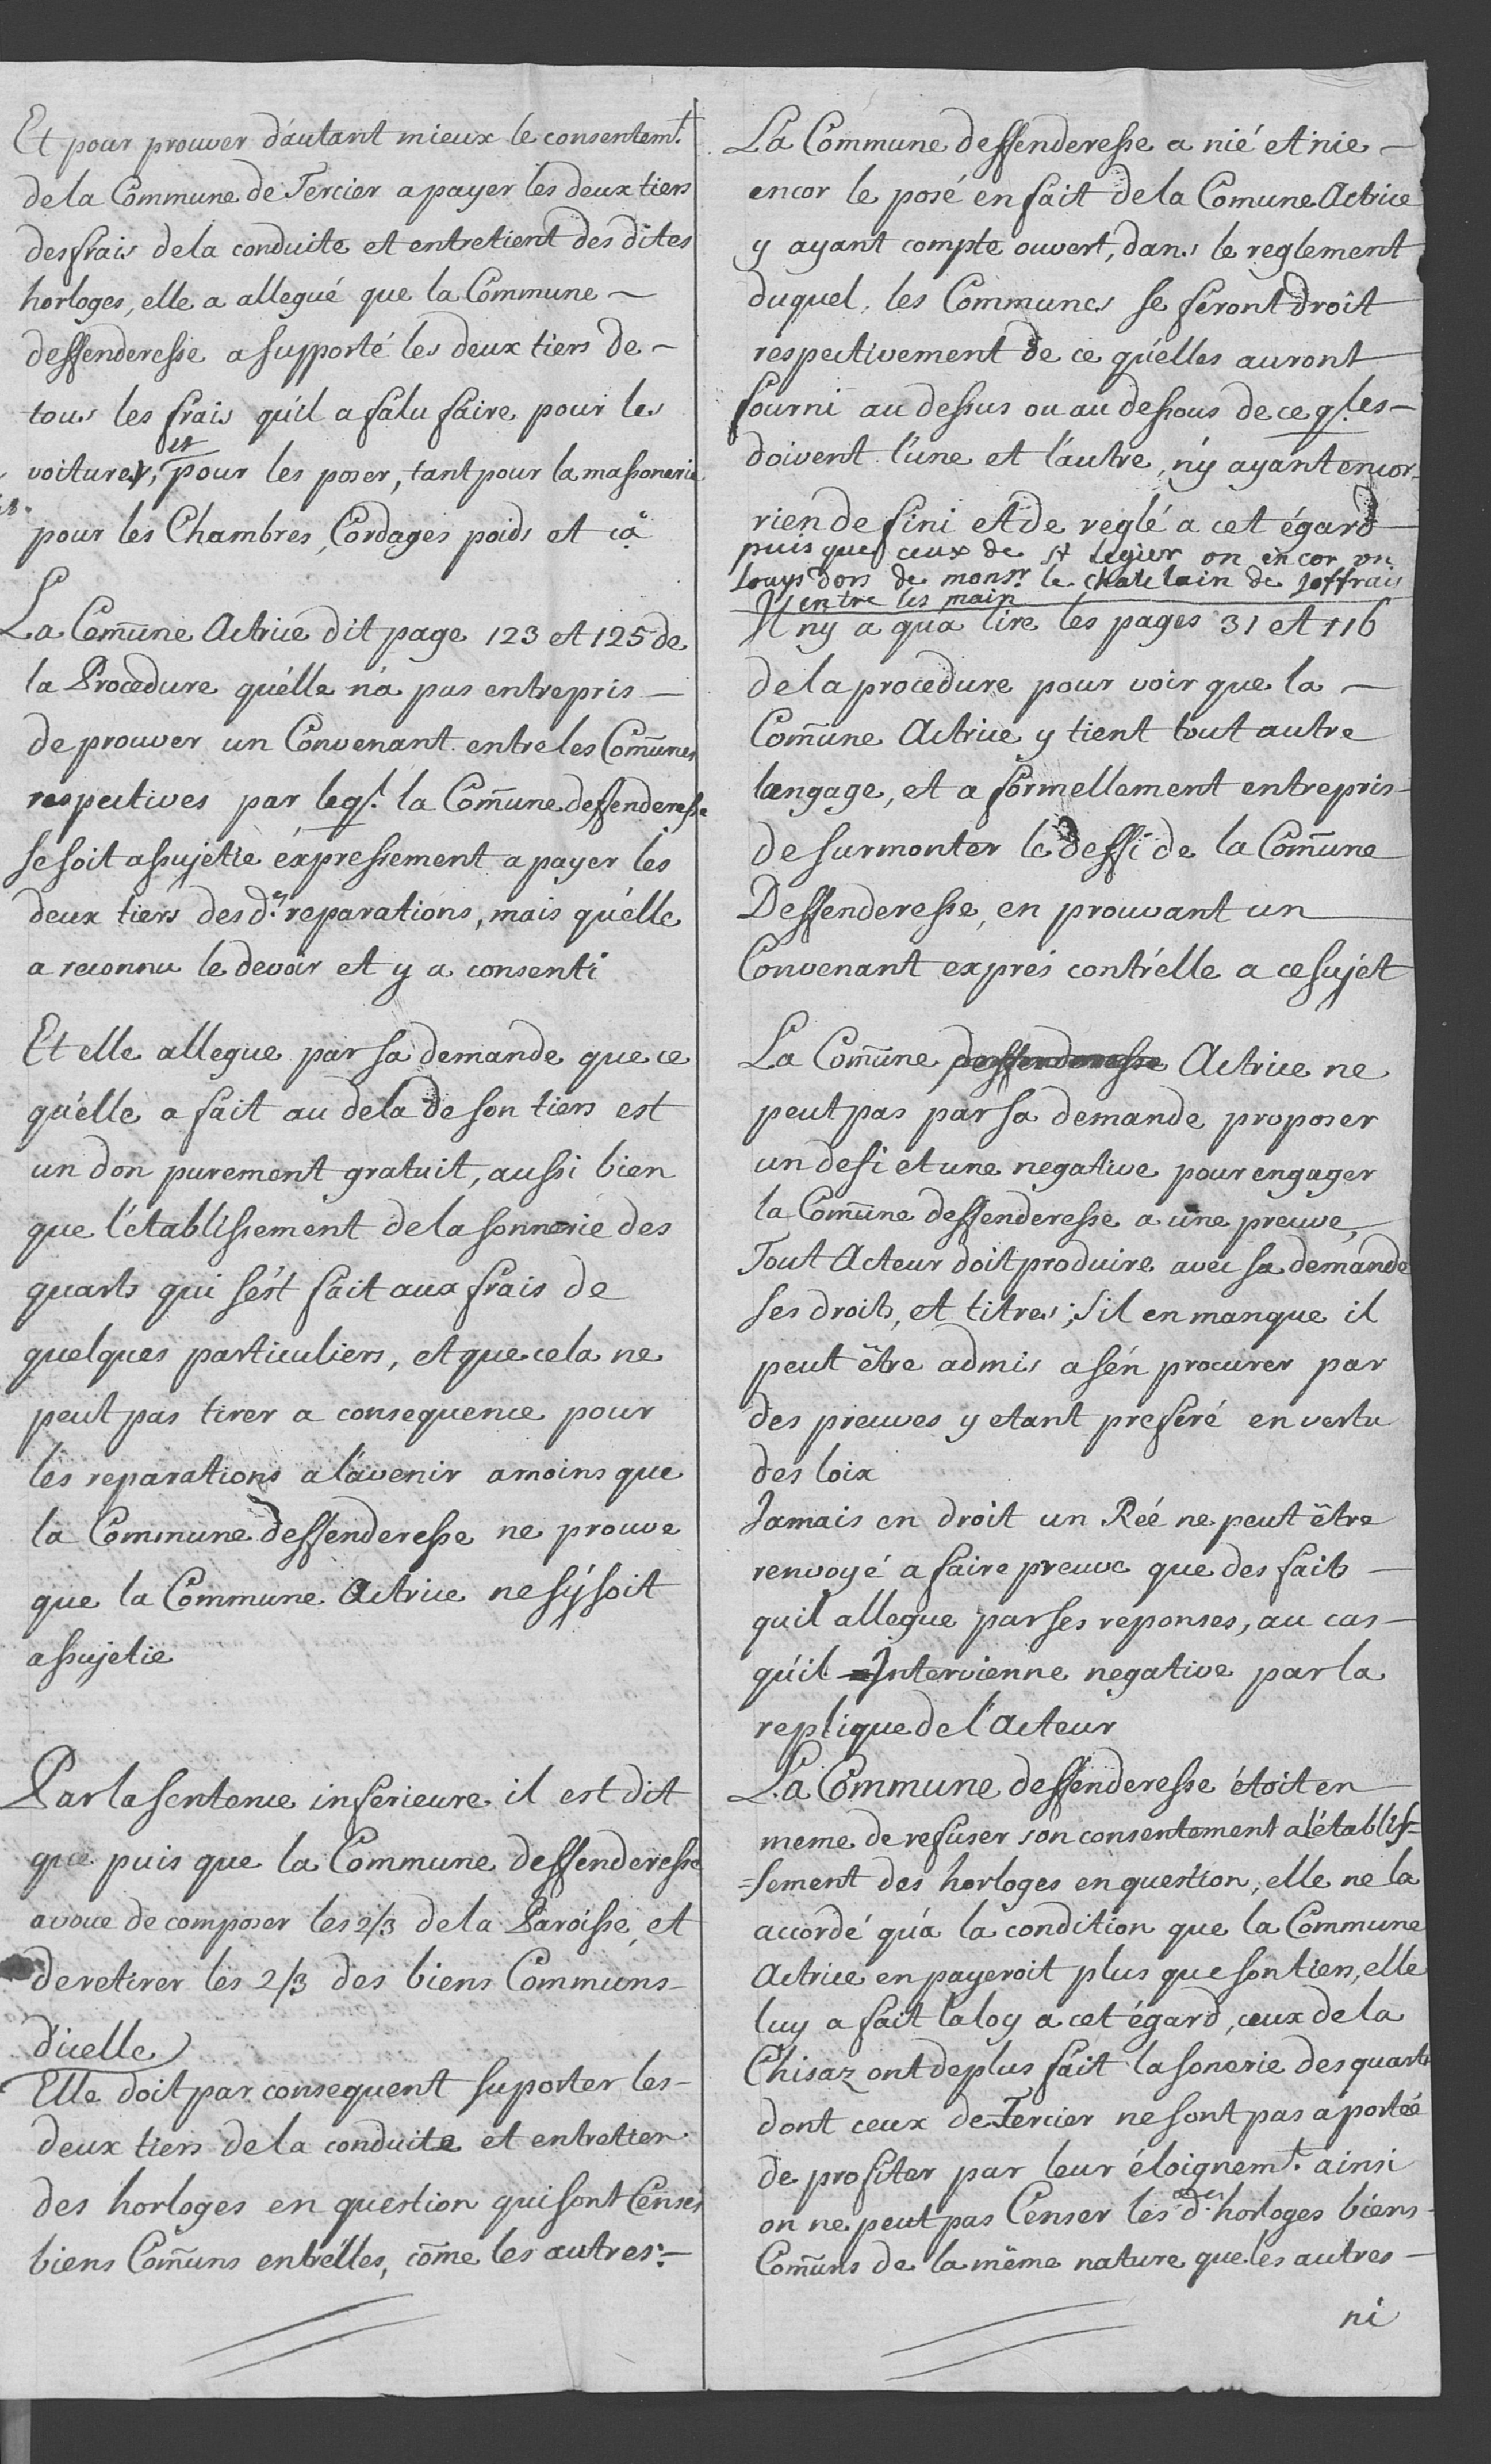 Et pour prouver d'autant mieux le consentem.t
de la Commune de Tercier a payer les deux tiers
des frais de la conduite et entretient des dites
horloges, elle a allegué que la Commune –
deffenderesse a supporté les deux tiers de –
tous les frais qu'il a falu faire pour les
voiturer, et pour les poser, tant pour la massonerie
pour les Chambres, Cordages poids et ca
La Com̃une Actrice dit page 123 et 125 de
la Procedure qu'elle n'a pas entrepris –
de prouver un Convenant entre les Com̃unes
respectives par leq.l la Com̃une deffenderesse
se soit assujetie éxpressement a payer les
deux tiers des d.es reparations, mais qu'elle
a reconnu le devoir et y a consenti
Et elle allegue par sa demande que ce
qu'elle a fait au dela de son tiers est
un don purement gratuit, aussi bien
que l'etablissement de la sonnerie des
quarts qui s'est fait aux frais de
quelques particuliers, et que cela ne
peut pas tirer a consequence pour
les reparations a l'avenir a moins que
la Commune deffenderesse ne prouve
que la Commune Actrice ne s'y soit
assujetie
Par la sentence inferieure il est dit
que puis que la Commune deffenderesse
avoue de composer les 2/3 de la Paroisse, et
de retirer les 2/3 des biens Communs –
d'icelle
Elle doit par consequent suporter les –
deux tiers de la conduite et entretien
des horloges en question qui sont Censés
biens Com̃uns entr'elles, com̃e les autres: –
La Commune deffenderesse a nié et nie –
encor le posé en fait de la Comune Actrice
y ayant compte ouvert, dans le reglement
duquel les Communes se feront droit
respectivement de ce qu'elles auront
fourni au dessus ou au dessous de ce q.les –
doivent l'une et l'autre, n'y ayant encor
rien de fini et de reglé a cet égard
puis que ceux de St Legier on encor un
Louys dors de monsr le chatelain de Joffrais
entre les main
Il ny a qua lire les pages 31 et 116
de la procedure pour voir que la –
Com̃une Actrice y tient tout autre
langage, et a formellement entrepris –
de surmonter le deffi de la Com̃une
Deffenderesse, en prouvant un
Convenant exprés contr'elle a ce sujet
La Com̃une deffenderesse Actrice ne
peut pas par sa demande proposer
un defi et une negative pour engager
la Com̃une deffenderesse a une preuve,
Tout Acteur doit produire avec sa demande
ses droits, et titres; s'il en manque il
peut être admis a s'en procurer par
des preuves y etant preferé en vertu
des loix
Jamais en droit un Réé ne peut être
renvoyé a faire preuve que des faits –
quil allegue par ses reponses, au cas –
qu'il Intervienne negative par la
replique de l'acteur
La Commune deffenderesse étoit en
meme de refuser son consentement a l'établis=
=sement des horloges en question, elle ne la
accordé qu'à la condition que la Commune
Actrice en payeroit plus que son tiers, elle
luy a fait la loy a cet égard, ceux de la
Chisaz ont de plus fait la sonerie des quarts
dont ceux de Tercier ne sont pas a portée
de profiter par leur éloignem.t ainsi
on ne peut pas Censer les d.es horloges biens –
Com̃uns de la même nature que les autres –
ni